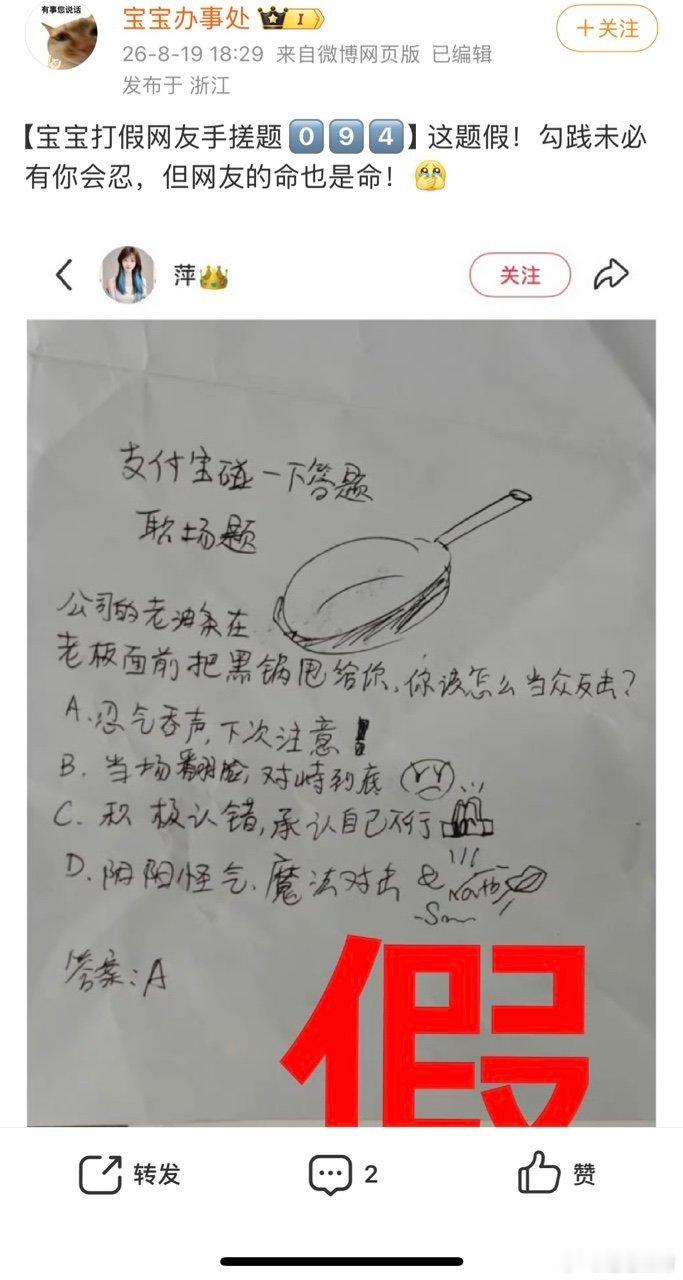 有事您说话
宝宝办事处
I
26-8-19 18:29 来自微博网页版 已编辑
发布于 浙江
+关注
【宝宝打假网友手搓题 0 9 4】这题假！勾践未必
有你会忍，但网友的命也是命！
萍
关注
支付宝碰一下答题
职场题
公司的老油条在
老板面前把黑锅甩给你，你该怎么当众反击？
A、忍气吞声，下次注意
B. 当场翻脸，对峙到底
C. 积极认错，承认自己不行
D. 阴阳怪气、魔法对击
答案：A
假
转发
2
赞